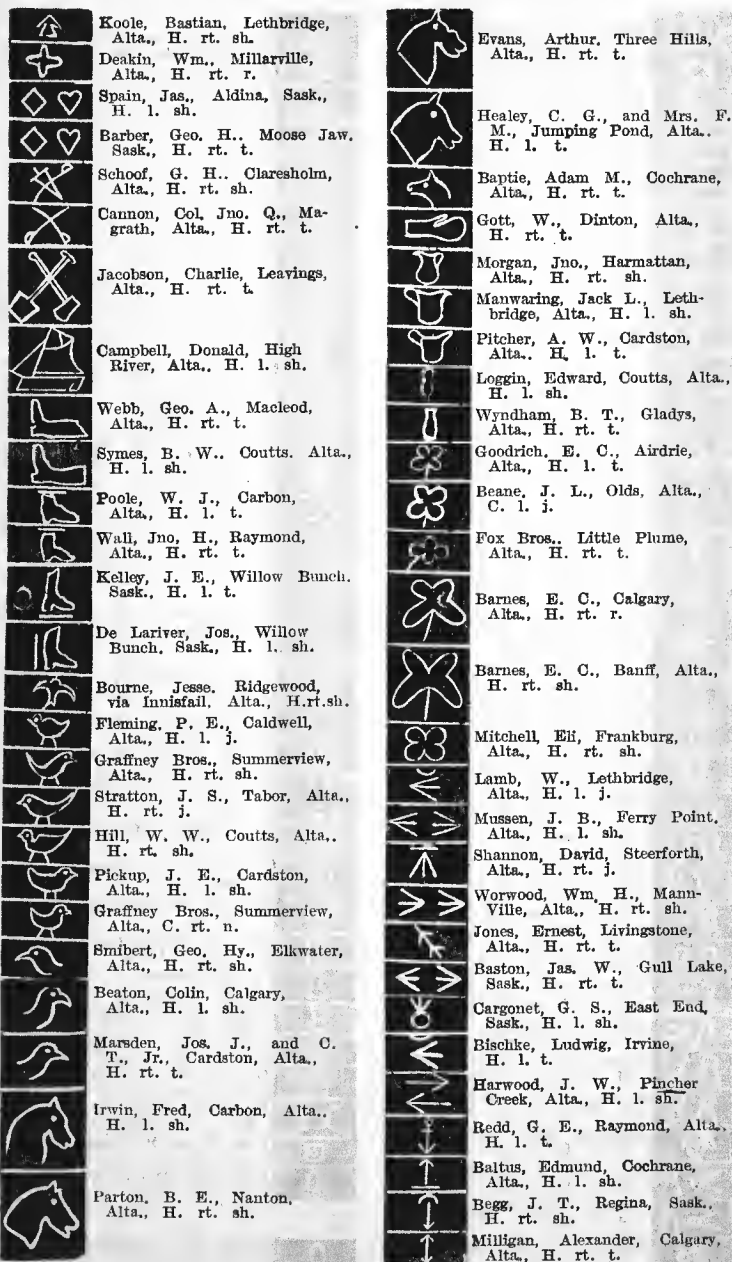 Koole, Bastian, Lethbridge,
Alta., H. rt. sh.
Deakin, Wm., Millarville,
Alta., H. rt. r.
Spain, Jas., Aldina, Sask.,
H. l. sh.
Barber, Geo. H.. Moose Jaw.
Sask., H. rt. t.
Schoof, G. H.. Claresholm,
Alta., H. rt. sh.
Cannon, Col. Jno. Q., Ma-
grath, Alta., H. rt. t.
Jacobson, Charlie, Leavings,
Alta., H. rt. t.
Campbell, Donald, High
River, Alta.. H. l. sh.
Webb, Geo. A., Macleod,
Alta., H. rt. t.
Symes, B. W.. Coutts. Alta.,
H. l. sh.
Poole, W. J., Carbon,
Alta., H. l. t.
Wall, Jno, H., Raymond,
Alta., H. rt. t.
Kelley, J. E., Willow Bunch.
Sask., H. l. t.
De Lariver, Jos., Willow
Bunch. Sask., H. l. sh.
Bourne, Jesse. Ridgewood,
via Innisfail, Alta., H.rt.sh.
Fleming, P. E., Caldwell,
Alta., H. l. j.
Graffney Bros., Summerview,
Alta., H. rt. sh.
Stratton, J. S., Tabor, Alta.,
H. rt. j.
Hill, W. W., Coutts, Alta..
H. rt. sh.
Pickup, J. E., Cardston,
Alta., H. l. sh.
Graffney Bros., Summerview,
Alta., C. rt. n.
Smibert, Geo. Hy., Elkwater,
Alta., H. rt. sh.
Beaton, Colin, Calgary,
Alta., H. l. sh.
Marsden, Jos. J., and C.
T., Jr., Cardston, Alta.,
H. rt. t.
Irwin, Fred, Carbon, Alta..
H. l. sh.
Parton. B. E., Nanton,
Alta., H. rt. sh.
Evans, Arthur. Three Hills,
Alta., H. rt. t.
Healey, C. G., and Mrs. F.
M., Jumping Pond, Alta..
H. l. t.
Baptie, Adam M., Cochrane,
Alta., H. rt. t.
Gott, W., Dinton, Alta.,
H. rt. t.
Morgan, Jno., Harmattan,
Alta., H. rt. sh.
Manwaring, Jack L., Leth-
bridge, Alta., H. l. sh.
Pitcher, A. W., Cardston,
Alta.. H. l. t.
Loggin, Edward, Coutts, Alta.,
H. l. sh.
Wyndham, B. T., Gladys,
Alta., H. rt. t.
Goodrich, E. C., Airdrie,
Alta., H. l. t.
Beane, J. L., Olds, Alta.,
C. l. j.
Fox Bros.. Little Plume,
Alta., H. rt. t.
Barnes, E. C., Calgary,
Alta., H. rt. r.
Barnes, E. C., Banff, Alta.,
H. rt. sh.
Mitchell, Eli, Frankburg,
Alta., H. rt. sh.
Lamb, W., Lethbridge,
Alta., H. l. j.
Mussen, J. B., Ferry Point.
Alta., H. l. sh.
Shannon, David, Steerforth,
Alta., H. rt. j.
Worwood, Wm. H., Mann-
Ville, Alta., H. rt. sh.
Jones, Ernest, Livingstone,
Alta., H. rt. t.
Baston, Jas. W., Gull Lake,
Sask., H. rt. t.
Cargonet, G. S., East End,
Sask., H. l. sh.
Bischke, Ludwig, Irvine,
H. l. t.
Harwood, J. W., Pincher
Creek, Alta., H. l. sh.
Redd, G. E., Raymond, Alta..
H. l. t.
Baltus, Edmund, Cochrane,
Alta., H. l. sh.
Begg, J. T., Regina, Sask..
H. rt. sh.
Milligan, Alexander, Calgary,
Alta., H. rt. t.